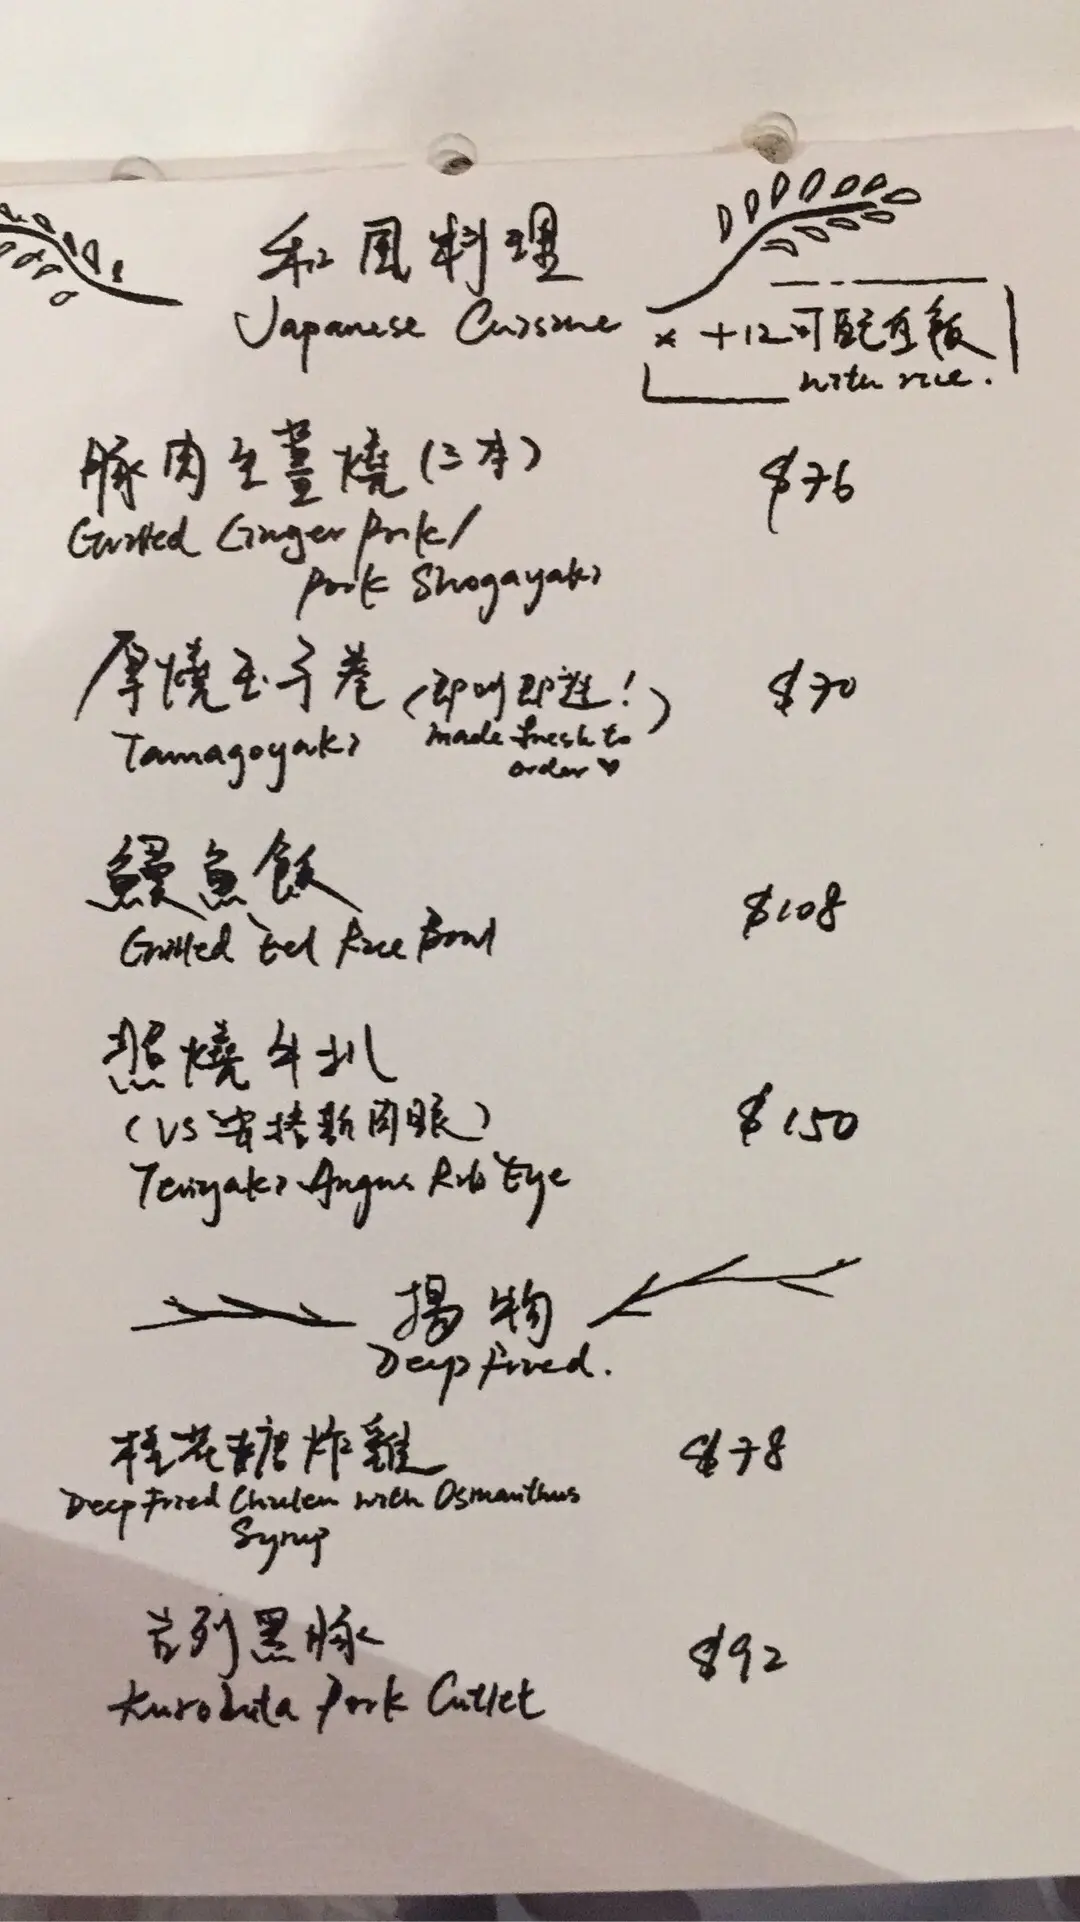 和風料理
Japanese Cuisine
* +12可配 飯
with rice.
豚肉生薑燒(三本) $76
Grilled Ginger Pork/
Pork Shogayaki
厚燒玉子卷 (即叫即造!) $70
Tamagoyaki made fresh to
order♥
鰻魚飯 $108
Grilled Eel Rice Bowl
照燒牛扒
(US安格斯肉眼) $150
Teriyaki Angus Rib Eye
揚物
Deep Fried.
桂花糖炸雞 $78
Deep Fried Chicken with Osmanthus
Syrup
吉列黑豚 $92
Kurobuta Pork Cutlet